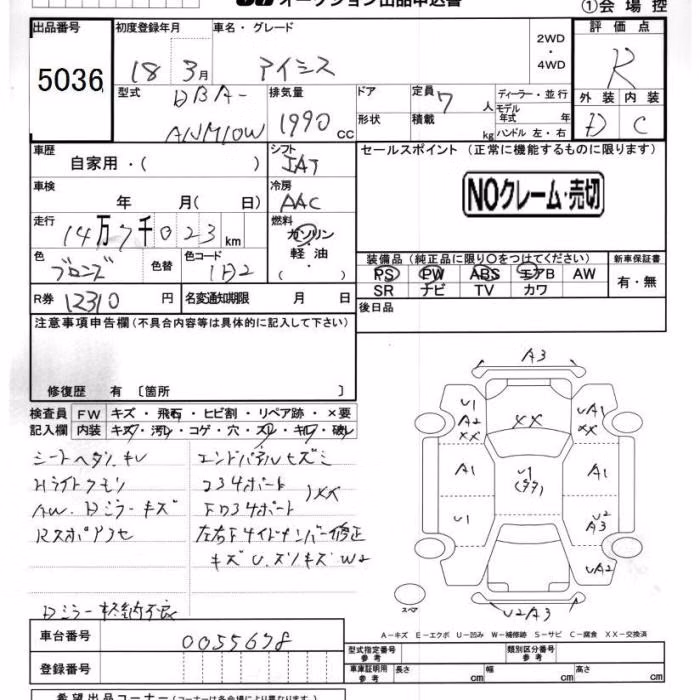 オークション出品申込書
①会場控
出品番号 初度登録年月 車名・グレード 評価点
5036 18 3月 アイシス 2WD・4WD R
型式 DBA-ANM10W 排気量 1990cc ドア 形状 定員 7人 積載 kg ディーラー・並行 モデル年式 年 ハンドル 左・右 外装 内装 D C
車歴 シフト セールスポイント (正常に機能するものに限ります)
自家用・( ) IAT
車検 冷房 NOクレーム・売切
年 月( 日) AAC
走行 燃料
14万7千023km ガソリン
軽油
・( )
色 色替 色コード 装備品(純正品に限り○をつけてください) 新車保証書
ブロンズ 1B2 PS PW ABS エアB AW 有・無
SR ナビ TV カワ
R券 12310円 名変通知期限 月 日 後日品
注意事項申告欄(不具合内容等は具体的に記入して下さい)
修復歴 有 〔箇所 〕
検査員 FW キズ・飛石・ヒビ割・リペア跡・×要
記入欄 内装 キズ・汚レ・コゲ・穴・スレ・キレ・破レ
シートヘタリ、キレ エンドパネルヒズミ
Hライトクモリ
AW、Dミラーキズ
左右Fサイドメンバー修正
キズU、スリキズW2
Dミラー格納不良
A3
U1 A2 XX
XX
UA1 XX
A1
U1
A1
U1
U2 A3
UA2
スペア
U2A3
A-キズ E-エクボ U-凹み W-補修跡 S-サビ C-腐食 XX-交換済
車台番号 0055678
型式指定番号 参考 類別区分番号 参考
登録番号 車庫証明用 参考 長さ cm 幅 cm 高さ cm
希望出品コーナー(コーナーは各会場により異なります。)